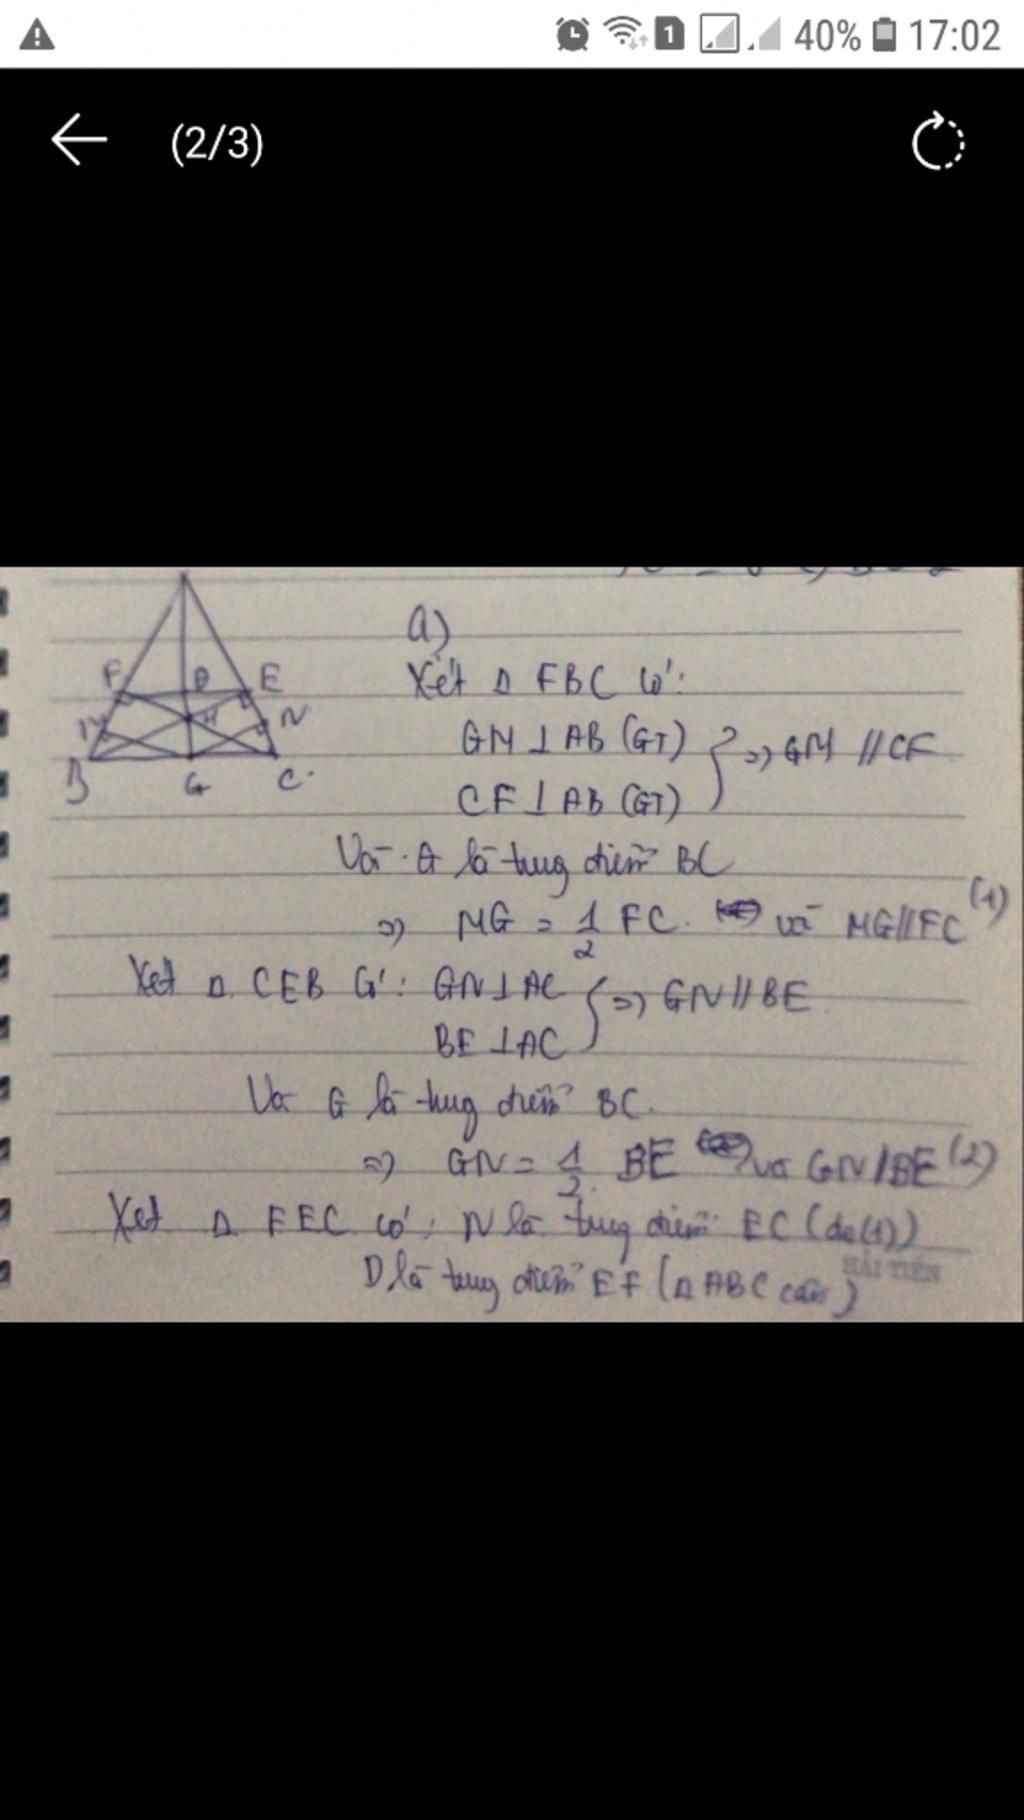 1 40% 17:02
(2/3)
a)
F D E
M H N
B G C
Xét Δ FBC có:
GM ⊥ AB (GT)
} => GM // CF
CF ⊥ AB (GT)
Và G là trung điểm BC
=> MG = 1/2 FC. và MG // FC (1)
Xét Δ CEB có: GN ⊥ AC
} => GN // BE
BE ⊥ AC
Và G là trung điểm BC.
=> GN = 1/2 BE và GN // BE (2)
Xét Δ FEC có: N là trung điểm EC (do (1))
HẢI TIẾN
D là trung điểm EF (Δ ABC cân)